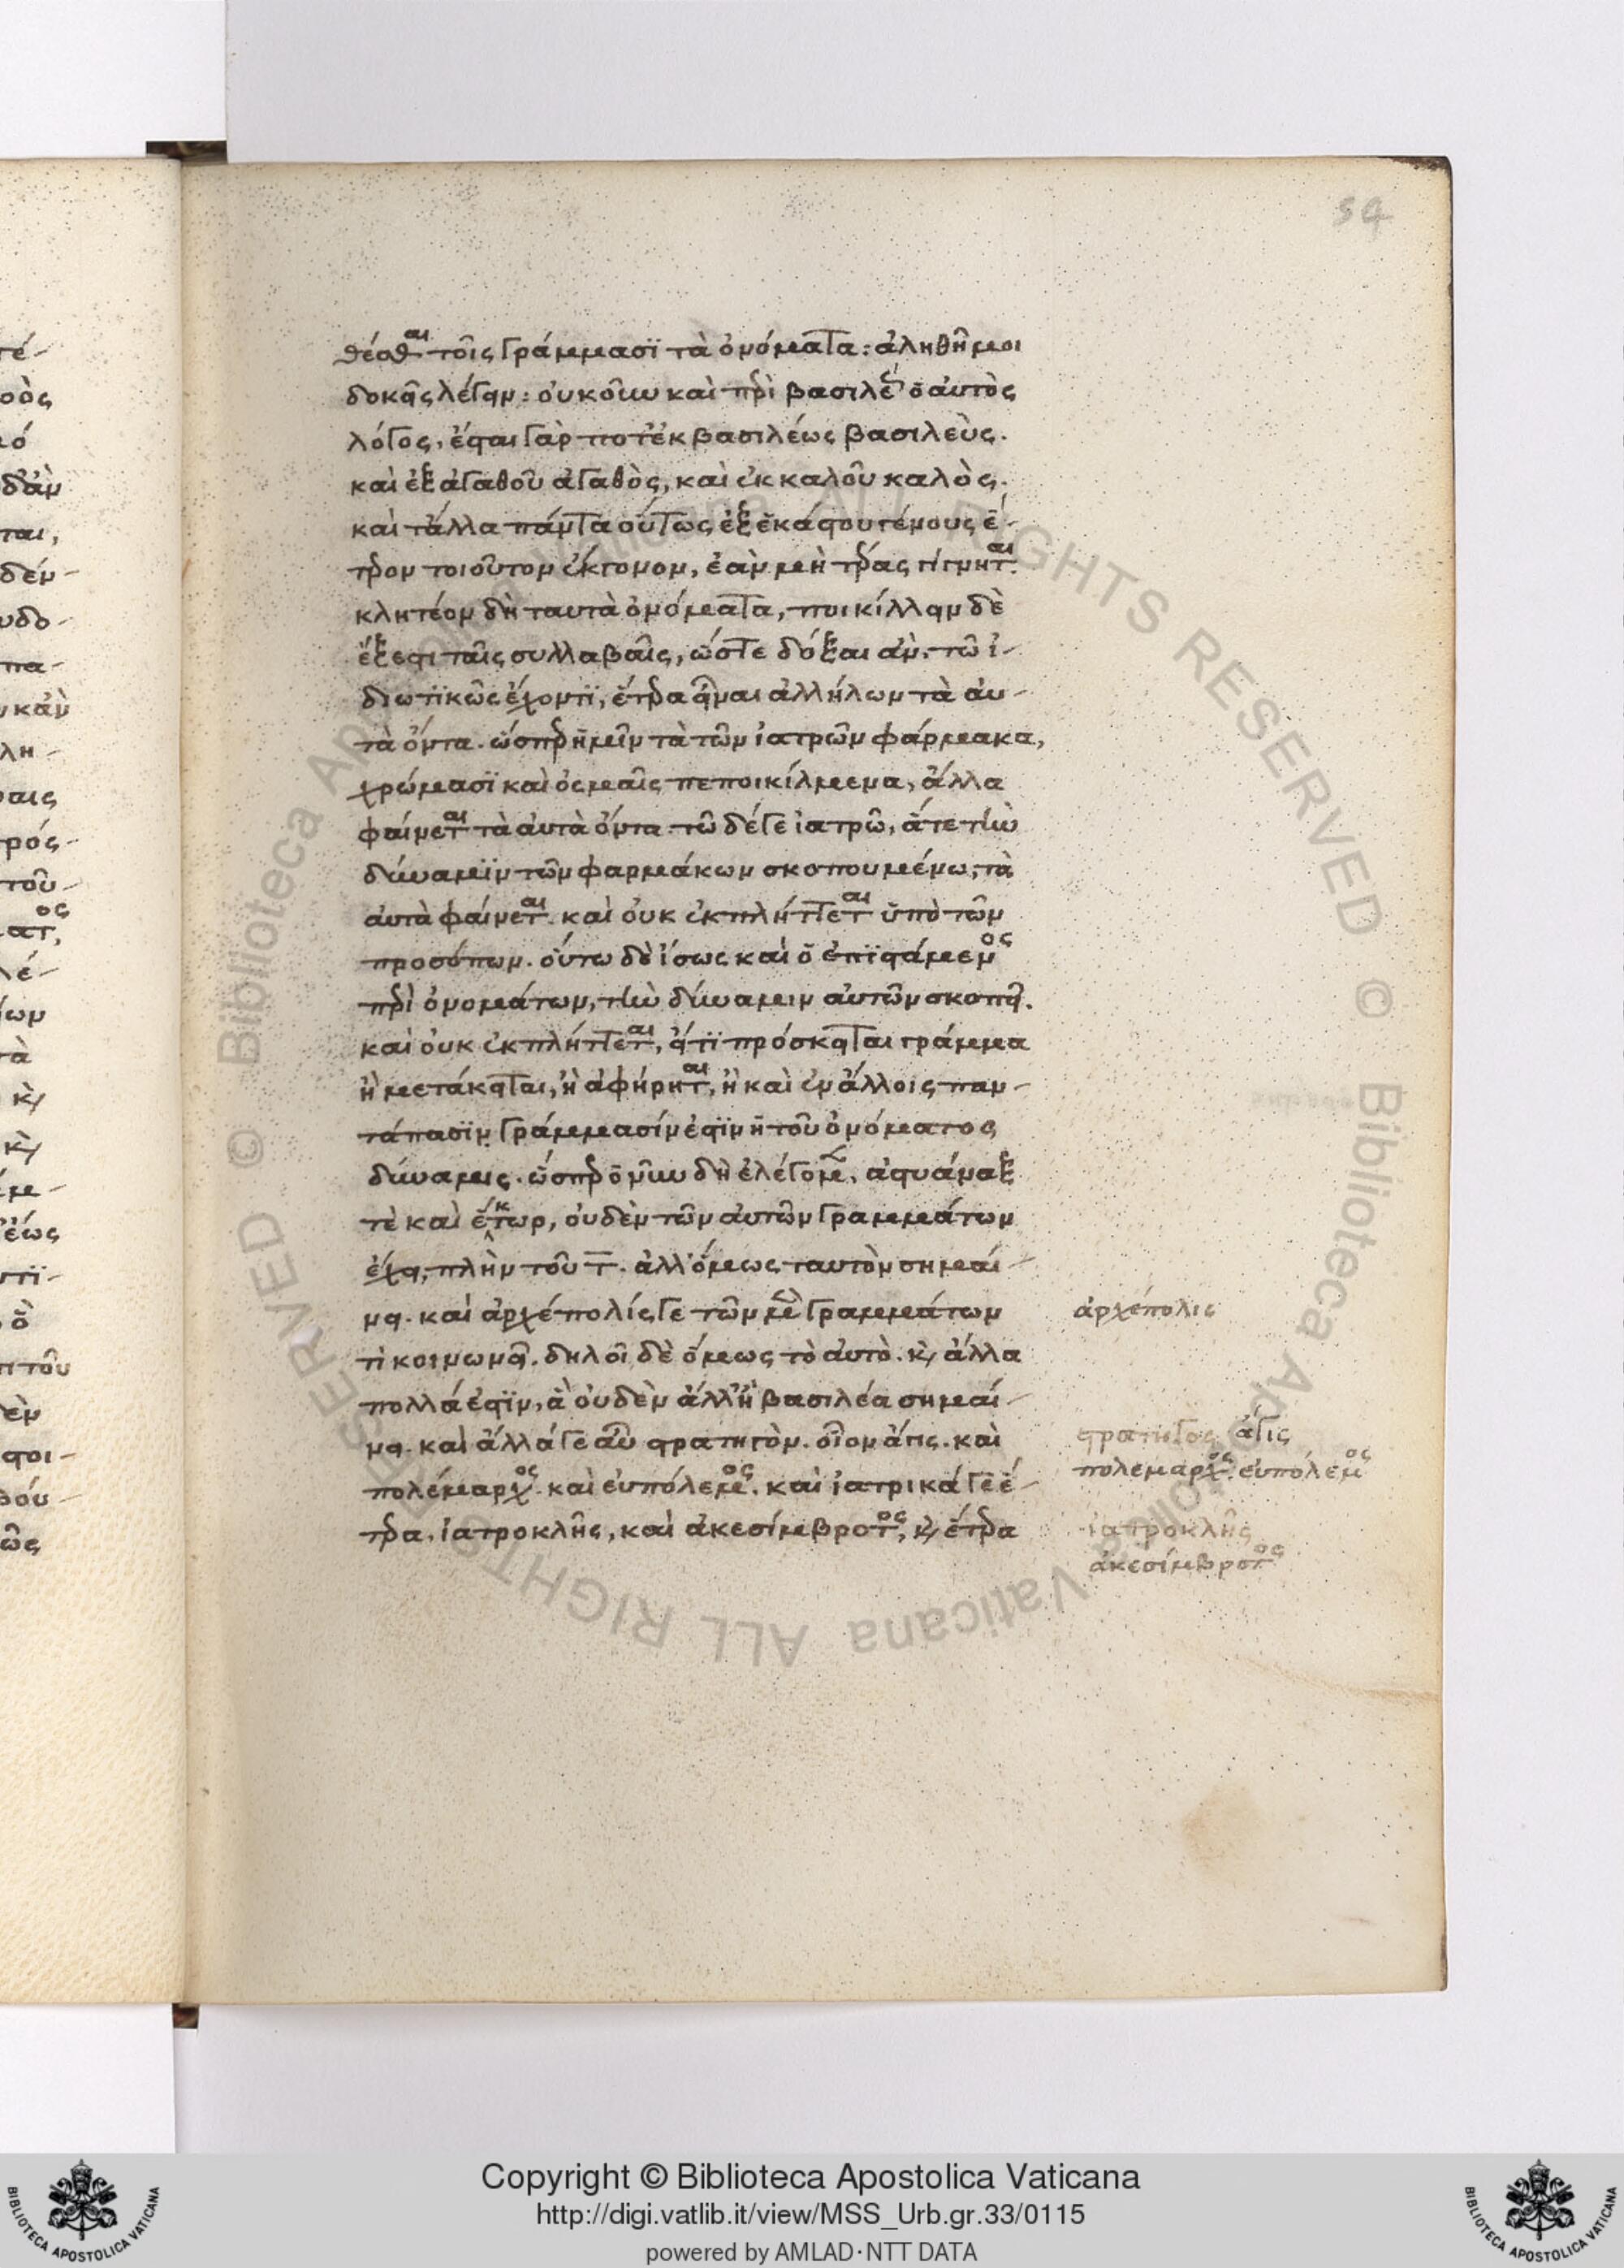 54
θέσθαι τοῖς γράμμασϊ τὰ ὀνόματα: ἀληθῆ μοι
δοκεῖς λέγειν: οὐκοῦν καὶ περὶ βασιλέως ὁ αὐτὸς
λόγος. ἔσται γάρ ποτ' ἐκ βασιλέως βασιλεὺς.
καὶ ἐξ ἀγαθοῦ ἀγαθὸς, καὶ ἐκ καλοῦ καλὸς.
καὶ τἆλλα πάντα οὕτως ἐξ ἑκάστου γένους ἕ-
τερον τοιοῦτον ἔκγονον, ἐὰν μὴ τέρας γίγνηται.
κλητέον δὴ ταυτὰ ὀνόματα, ποικίλλειν δὲ
ἔξεστι ταῖς συλλαβαῖς, ὥστε δόξαι ἂν. τῶ ἰ-
διωτϊκῶς ἔχοντϊ, ἕτερα εἶναι ἀλλήλων τὰ αὐ-
τὰ ὄντα. ὥσπερ ἡμῖν τὰ τῶν ἰατρῶν φάρμακα,
χρώμασϊ καὶ ὀσμαῖς πεποικίλμενα, ἄλλα
φαίνεται τὰ αὐτὰ ὄντα. τῶ δέ γε ἰατρῶ, ἅτε τὴν
δύναμϊν τῶν φαρμάκων σκοπουμένω, τὰ
αὐτὰ φαίνεται. καὶ οὐκ ἐκπλήττεται ὑπὸ τῶν
προσόπων. οὕτω δὲ ἴσως καὶ ὁ ἐπϊστάμενος
περὶ ὀνομάτων, τὴν δύναμιν αὐτῶν σκοπεῖ.
καὶ οὐκ ἐκπλήττεται, εἴ τϊ πρόσκειται γράμμα
ἢ μετάκειται, ἢ ἀφήρηται, ἢ καὶ ἐν ἄλλοις παν-
τάπασϊν γράμμασίν ἐστϊν ἡ τοῦ ὀνόματος
δύναμις. ὥσπερ ὃ νῦν δὴ ἐλέγομεν, ἀστυάναξ
τὲ καὶ ἕκτωρ, οὐδὲν τῶν αὐτῶν γραμμάτων
ἔχει, πλὴν τοῦ τ̅. ἀλλ' ὅμως ταυτὸν σημαί-
νει. καὶ ἀρχέπολίς γε τῶν μὲν γραμμάτων
τὶ κοινωνεῖ. δηλοῖ δὲ ὅμως τὸ αὐτὸ. καὶ ἄλλα
πολλά ἐστϊν, ἃ οὐδὲν ἀλλ' ἢ βασιλέα σημαί-
νει. καὶ ἄλλά γε αὖ στρατηγὸν. οἷον ἄγις. καὶ
πολέμαρχος. καὶ εὐπόλεμος. καὶ ἰατρικά γε ἕ-
τερα. ἰατροκλῆς, καὶ ἀκεσίμβροτος, καὶ ἕτερα
ἀρχέπολις
στρατηγὸς ἄγις
πολεμαρχος. εὐπόλεμος
ἰατροκλῆς
ἀκεσίμβροτος
Copyright © Biblioteca Apostolica Vaticana
http://digi.vatlib.it/view/MSS_Urb.gr.33/0115
powered by AMLAD·NTT DATA
© Biblioteca Apostolica Vaticana ALL RIGHTS RESERVED © Biblioteca Apostolica Vaticana ALL RIGHTS RESERVED
BIBLIOTECA APOSTOLICA VATICANA
BIBLIOTECA APOSTOLICA VATICANA